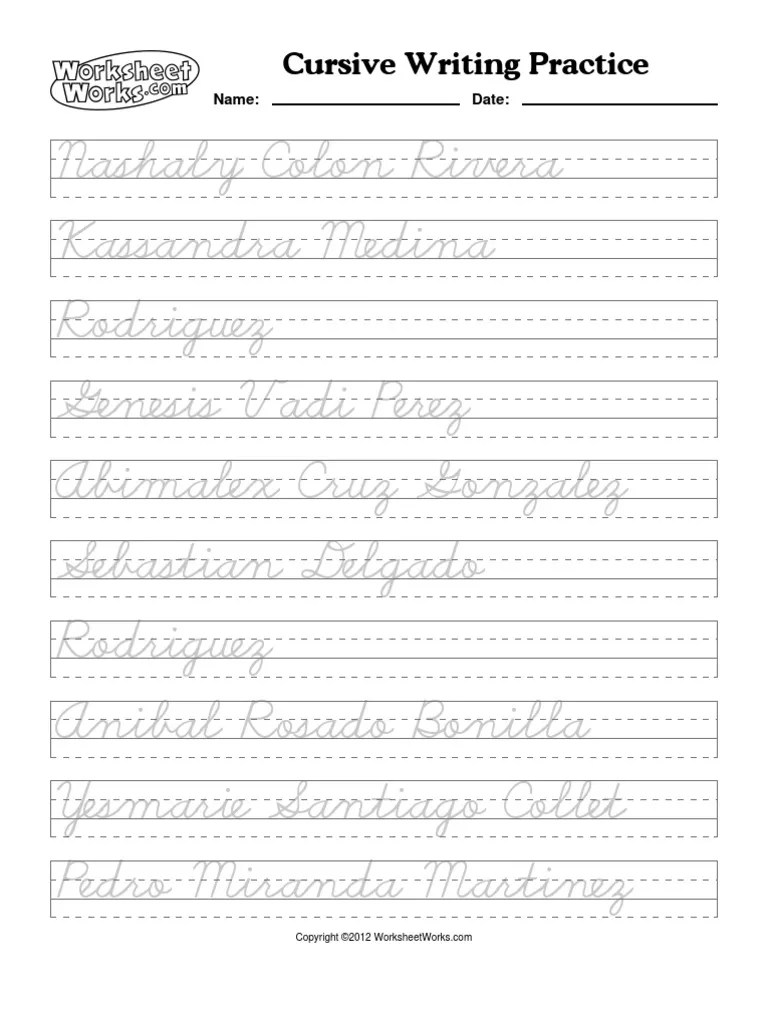 WorksheetWorks.com
Cursive Writing Practice
Name: Date:
Nashaly Colon Rivera
Kassandra Medina
Rodriguez
Genesis Vadi Perez
Abimalex Cruz Gonzalez
Sebastian Delgado
Rodriguez
Anibal Rosado Bonilla
Yesmarie Santiago Collet
Pedro Miranda Martinez
Copyright ©2012 WorksheetWorks.com